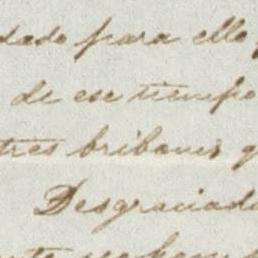 dado para ello
de ese tiempo
tres bribones q
Desgraciada